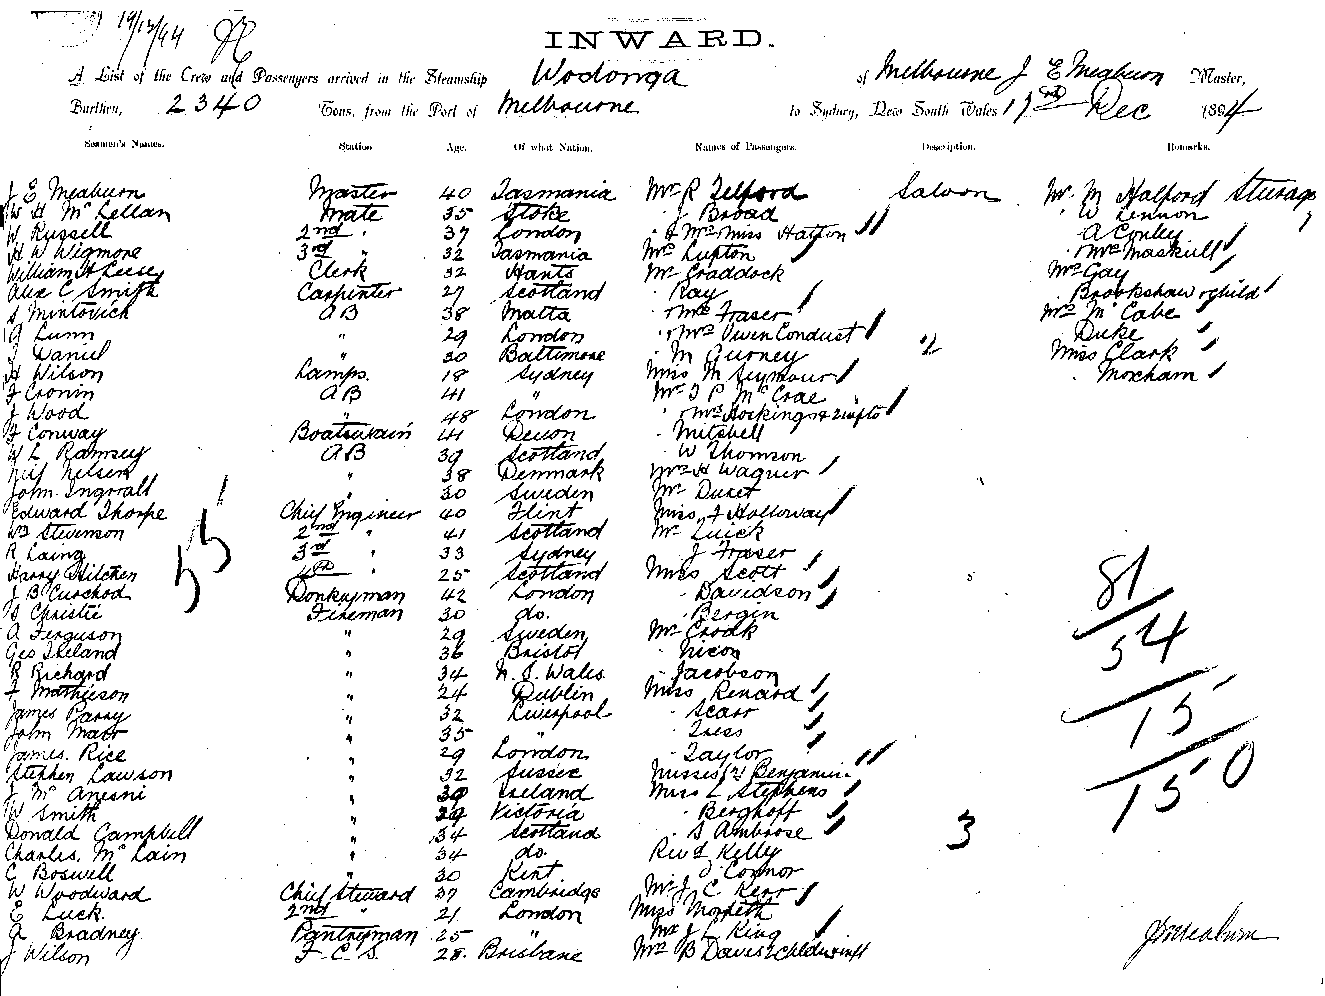 19/12/94
INWARD.
A List of the Crew and Passengers arrived in the Steamship Wodonga of Melbourne J E Meaburn Master,
Burthen, 2340 Tons, from the Port of Melbourne to Sydney, New South Wales 17th Dec 1894
Seamen's Names. Station Age. Of what Nation. Names of Passengers. Description. Remarks.
J E Meaburn Master 40 Tasmania Mr R Telford Saloon Mr M Halford Steerage
W H McLellan Mate 35 Stoke " J Broad " W Lennon
W Russell 2nd " 37 London " & Mrs Miss Hatson " A Conley
H W Wigmore 3rd " 32 Tasmania Mrs Lupton " Mrs Maskull
William H Leesey Clerk 32 Hants Mr Craddock Mr Gay
Alex C Smith Carpenter 27 Scotland " Ray " Brookshaw & child
S Mintovich AB 38 Malta " & Mrs Fraser Mrs McCabe
G Lunn " 29 London " & Mrs Owen Conduct " Duke
J Daniel " 30 Baltimore " M Gurney 2 Miss Clark
H Wilson Lamps. 18 Sydney Miss M Seymour " Moxham
F Cronin AB 41 " Mr J P McCrae
J Wood " 48 London " & Mrs Hocking & 2 infts
F Conway Boatswain 41 Devon " Mitchell
W L Ramsey AB 39 Scotland " W Thomson
Neis Nelsen " 38 Denmark Mrs H Wagner
John Ingvall " 30 Sweden Mr Duret
Edward Thorpe Chief Engineer 40 Flint Miss F Holloway
Wm Stevenson 2nd " 41 Scotland Mr Luick
R Laing 3rd " 33 Sydney " J Fraser
Harry Hitchen 4th " 25 Scotland Miss Scott
J B Curchod Donkeyman 42 London " Davidson
Christie Fireman 30 do. " Bergin
A Ferguson " 29 Sweden Mr Crook
Geo Ireland " 36 Bristol " Nixon
R Richard " 34 N. S. Wales " Jacobson
F Mathieson " 24 Dublin Miss Renard
James Parry " 32 Liverpool " Scarr
John Marr " 35 " " Tress
James. Rice " 29 London " Taylor
Stephen Lawson " 32 Sussex Misses (2) Benjamin
J McAnesni " 30 Ireland Miss L Stephens
W Smith " 29 Victoria " Berghoff
Donald Campbell " 34 Scotland " S Ambrose 3
Charles. McLain " 34 do. Revd Kelly
C Boswell " 30 Kent " O'Connor
W Woodward Chief Steward 37 Cambridge Mr J C Kerr
E Luck. 2nd " 21 London Miss Morfeth
A Bradney Pantryman 25 " Mr J L King
J Wilson F. C. S. 28. Brisbane Mrs B Davis 2 child & inft
55
81
54
15
150
J E Meaburn